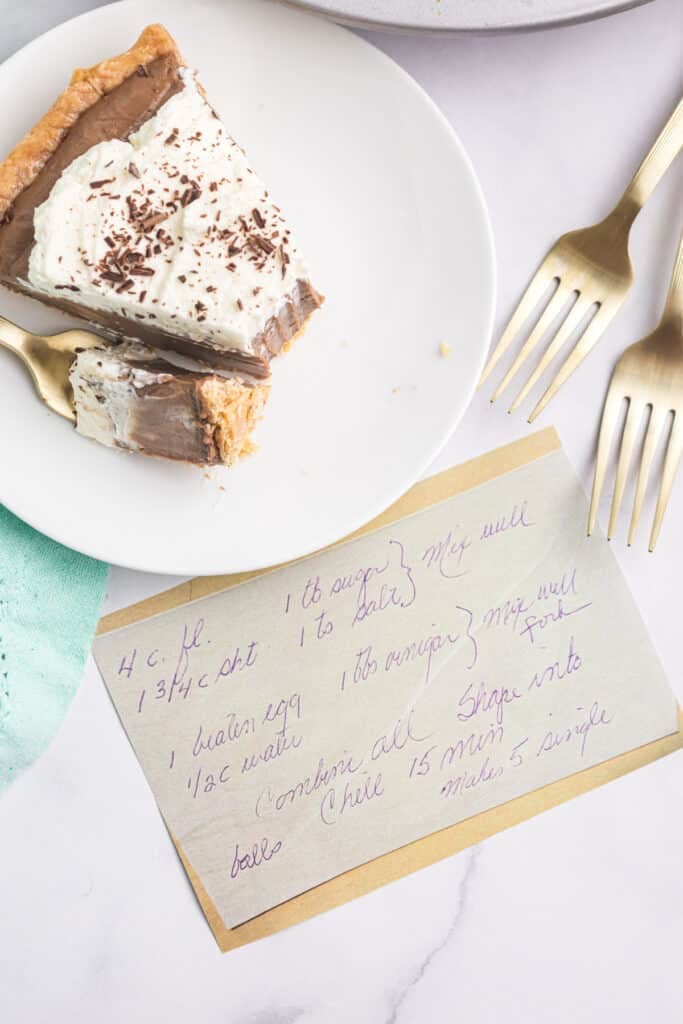 4 c. fl. 1 tb sugar } Mix well
1 3/4 c sht. 1 ts salt
1 beaten egg 1 tbs vinigar } Mix well
1/2 c water fork
Combine all Shape into
balls Chill 15 min
Makes 5 single